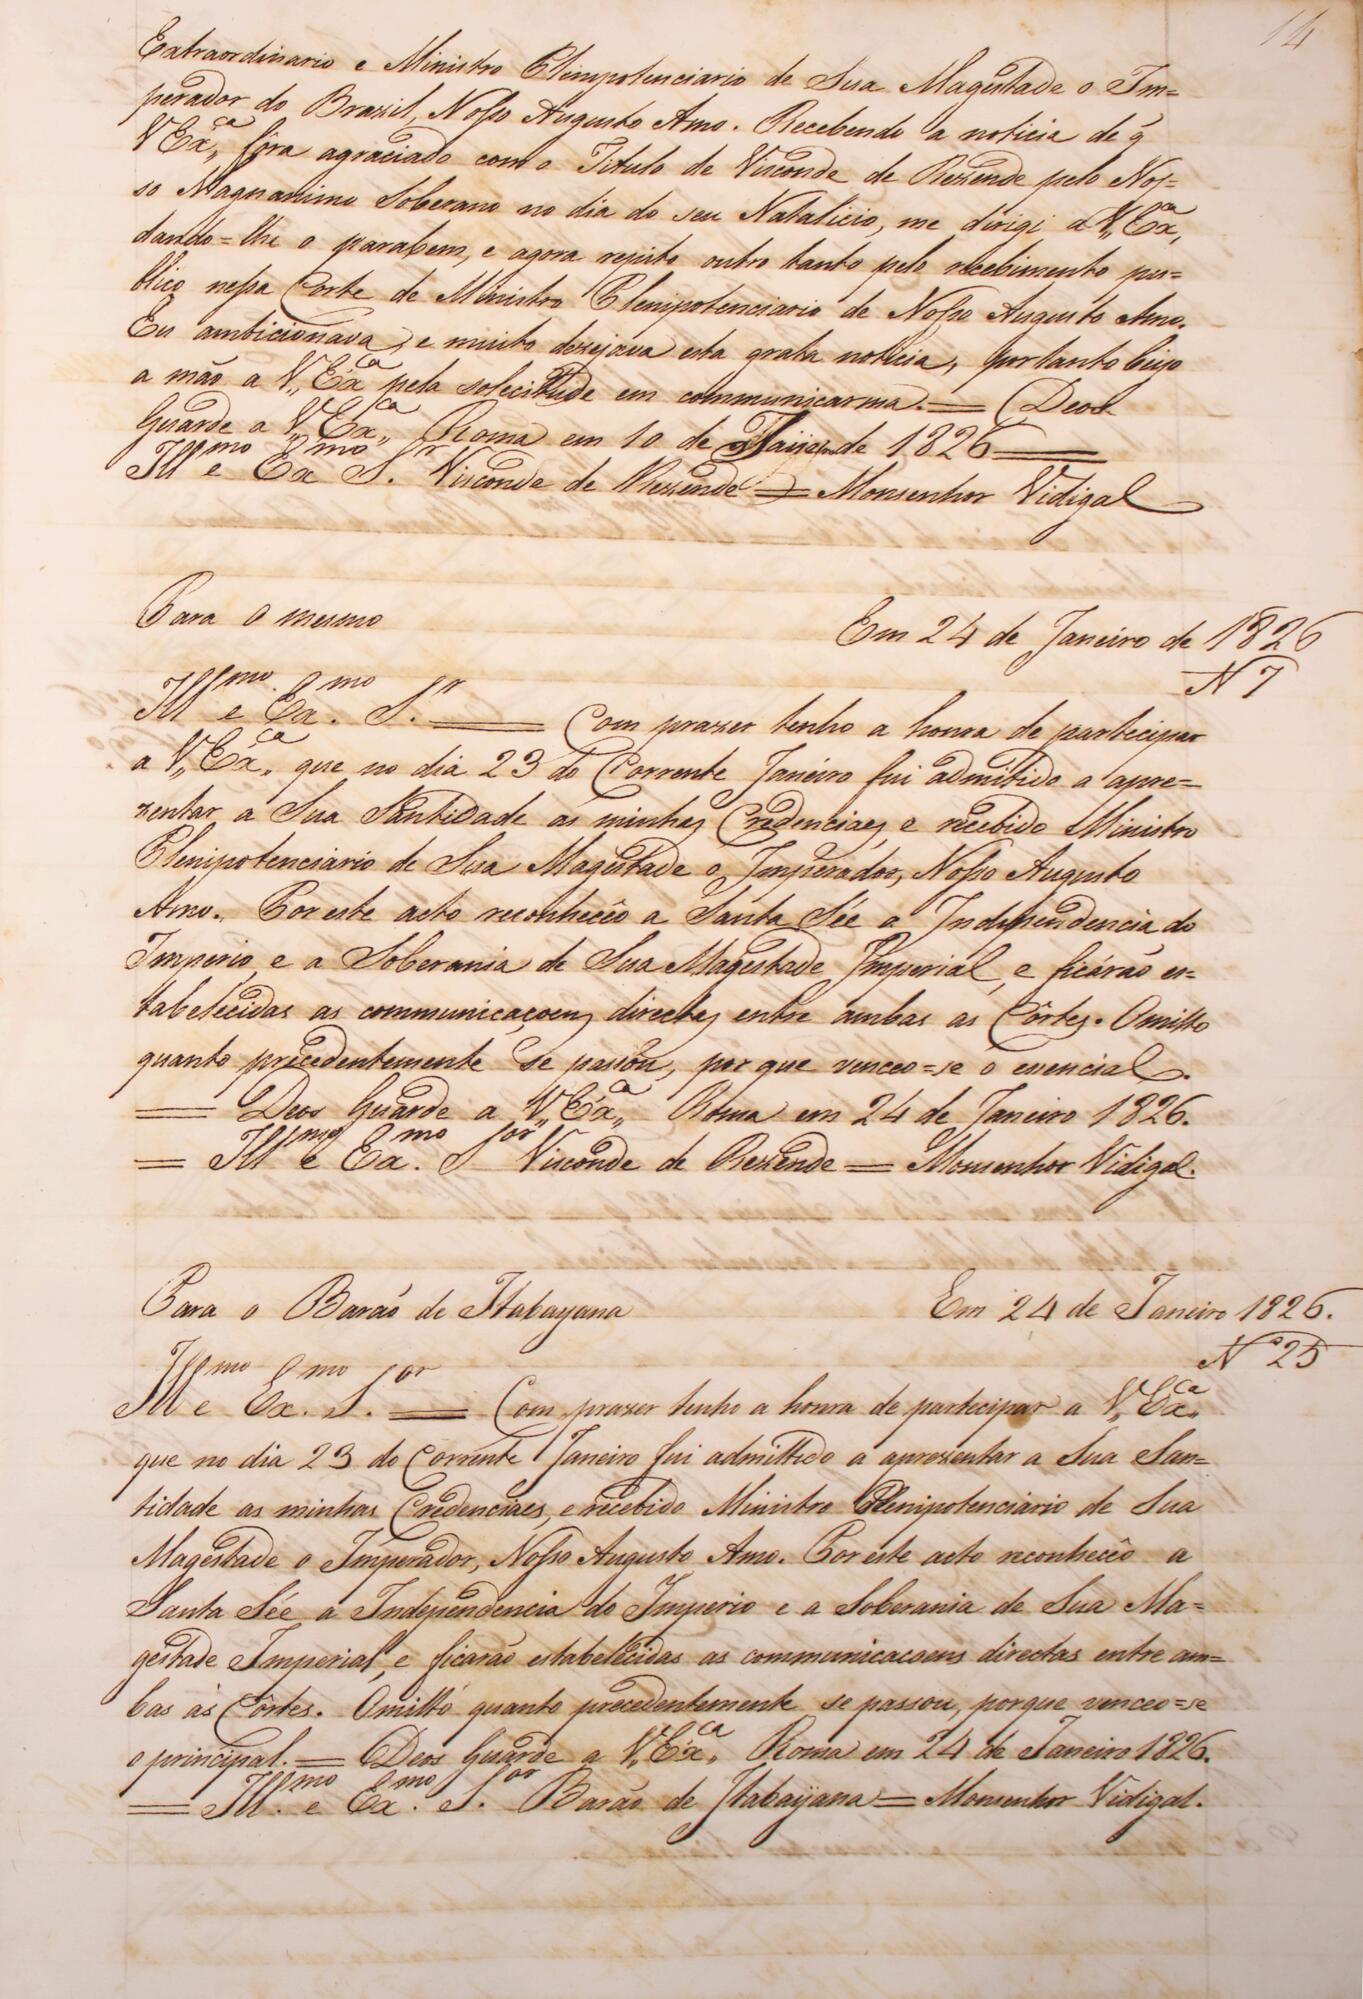 14
Extraordinario e Ministro Plenipotenciario de Sua Magestade o Im=
perador do Brazil, Nosso Augusto Amo. Recebendo a noticia de q
V,,Exca,, fôra agraciado com o Titulo de Visconde de Rezende pelo Nos=
so Magnanimo Soberano no dia do seu Natalicio, me dirigi a V,,Exca,,
dando=lhe o parabem, e agora repito outro tanto pelo recebimento pu=
blico nessa Corte de Ministro Plenipotenciario de Nosso Augusto Amo.
Eu ambicionava, e muito dezejava esta grata noticia, portanto beijo
a mão a V,,Exca pela solecitude em communicarma. = Deos
Guarde a V,,Exca,, Roma em 10 de de 1826 =
Illmo e Exmo Sr. Visconde de Rezende = Monsenhor Vidigal
Para o mesmo Em 24 de Janeiro de 1826
N 7
Illmo e Exmo. Sr. = Com prazer tenho a honra de partecipar
a V,,Exca,, que no dia 23 do Corrente Janeiro fui admitido a apre=
zentar a Sua Santidade as minhas Credenciaes, e recebido Ministro
Plenipotenciario de Sua Magestade o Imperador, Nosso Augusto
Amo. Por este acto reconhecêo a Santa Sée a Independencia do
Imperio, e a Soberania de Sua Magestade Imperial, e ficárão es=
tabelecidas as communicaçoens directas entre ambas as Côrtes. Omitto
quanto precedentemente se passou, por que venceo=se o esencial.
= Deos Guarde a V,,Exca,, Roma em 24 de Janeiro 1826.
= Illmo e Exmo. Sor Visconde de Rezende = Monsenhor Vidigal.
Para o Barão de Itabayana Em 24 de Janeiro 1826.
No 25
Illmo e Exmo. Sor. = Com prazer tenho a honra de partecipar a V,,Exca,,
que no dia 23 do Corrente Janeiro fui admittido a aprezentar a Sua San=
tidade as minhas Credenciaes, e recebido Ministro Plenipotenciario de Sua
Magestade o Imperador, Nosso Augusto Amo. Por este acto reconhecêo a
Santa Sée a Independencia do Imperio e a Soberania de Sua Ma=
gestade Imperial, e ficarão estabelecidas as communicacoens directas entre am=
bas as Côrtes. Omitto quanto precedentemente se passou, porque venceo=se
o principal. = Deos Guarde a V,,Exca,, Roma em 24 de Janeiro 1826.
= Illmo. e Exmo. Sor. Barão de Itabaÿana = Monsenhor Vidigal.